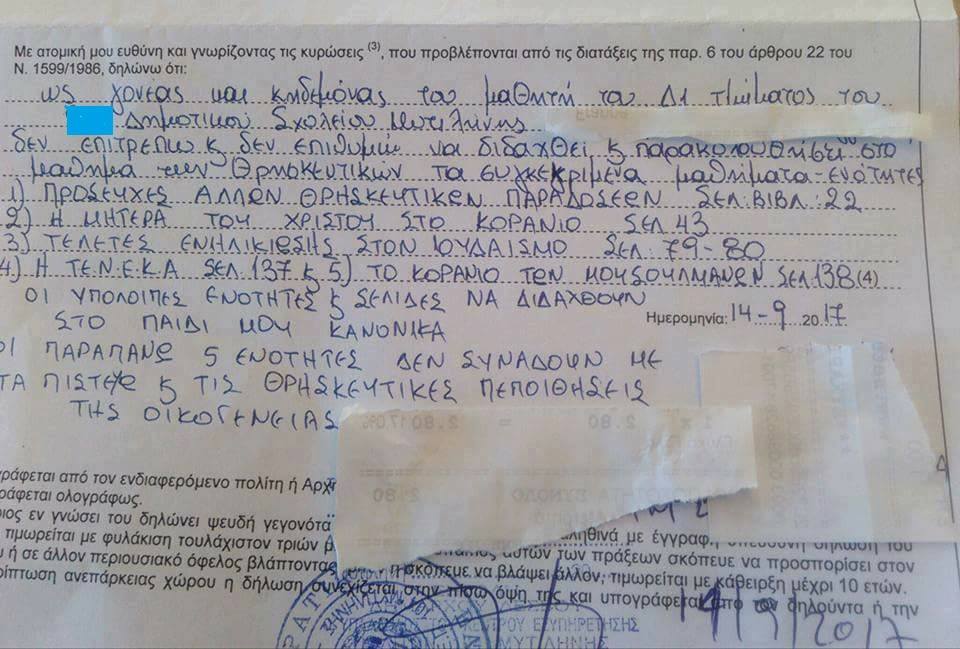 Με ατομική μου ευθύνη και γνωρίζοντας τις κυρώσεις (3), που προβλέπονται από τις διατάξεις της παρ. 6 του άρθρου 22 του
Ν. 1599/1986, δηλώνω ότι:
ως γονέας και κηδεμόνας του μαθητή του Δ1 τμήματος του
Δημοτικού Σχολείου Μυτιλήνης
δεν επιτρέπω & δεν επιθυμώ να διδαχθεί & παρακολουθήσει στο
μάθημα των Θρησκευτικών τα συγκεκριμένα μαθήματα-ενότητες
1) ΠΡΟΣΕΥΧΕΣ ΑΛΛΩΝ ΘΡΗΣΚΕΥΤΙΚΩΝ ΠΑΡΑΔΟΣΕΩΝ ΣΕΛ. ΒΙΒΛ.: 22
2) Η ΜΗΤΕΡΑ ΤΟΥ ΧΡΙΣΤΟΥ ΣΤΟ ΚΟΡΑΝΙΟ ΣΕΛ 43
3) ΤΕΛΕΤΕΣ ΕΝΗΛΙΚΙΩΣΗΣ ΣΤΟΝ ΙΟΥΔΑΙΣΜΟ ΣΕΛ. 79-80
4) Η ΤΕ.Ν.Ε.Κ.Α ΣΕΛ. 137 & 5) ΤΟ ΚΟΡΑΝΙΟ ΤΩΝ ΜΟΥΣΟΥΛΜΑΝΩΝ ΣΕΛ 138 (4)
ΟΙ ΥΠΟΛΟΙΠΕΣ ΕΝΟΤΗΤΕΣ & ΣΕΛΙΔΕΣ ΝΑ ΔΙΔΑΧΘΟΥΝ
ΣΤΟ ΠΑΙΔΙ ΜΟΥ ΚΑΝΟΝΙΚΑ
Ημερομηνία: 14-9 2017
ΟΙ ΠΑΡΑΠΑΝΩ 5 ΕΝΟΤΗΤΕΣ ΔΕΝ ΣΥΝΑΔΟΥΝ ΜΕ
ΤΑ ΠΙΣΤΕΥΩ & ΤΙΣ ΘΡΗΣΚΕΥΤΙΚΕΣ ΠΕΠΟΙΘΗΣΕΙΣ
ΤΗΣ ΟΙΚΟΓΕΝΕΙΑΣ
ράφεται από τον ενδιαφερόμενο πολίτη ή Αρχ
ράφεται ολογράφως.
ιος εν γνώσει του δηλώνει ψευδή γεγονότα
αληθινά με έγγραφ
δήλωση του
τιμωρείται με φυλάκιση τουλάχιστον τριών μ
αυτών των πράξεων σκόπευε να προσπορίσει στον
ή σε άλλον περιουσιακό όφελος βλάπτοντας
ή σκόπευε να βλάψει άλλον, τιμωρείται με κάθειρξη μέχρι 10 ετών.
ρίπτωση ανεπάρκειας χώρου η δήλωση συνεχίζεται στην πίσω όψη της και υπογράφεται από τον δηλούντα ή την
ΚΕΝΤΡΟΥ ΕΞΥΠΗΡΕΤΗΣΗΣ
ΜΥΤΙΛΗΝΗΣ
14/9/2017